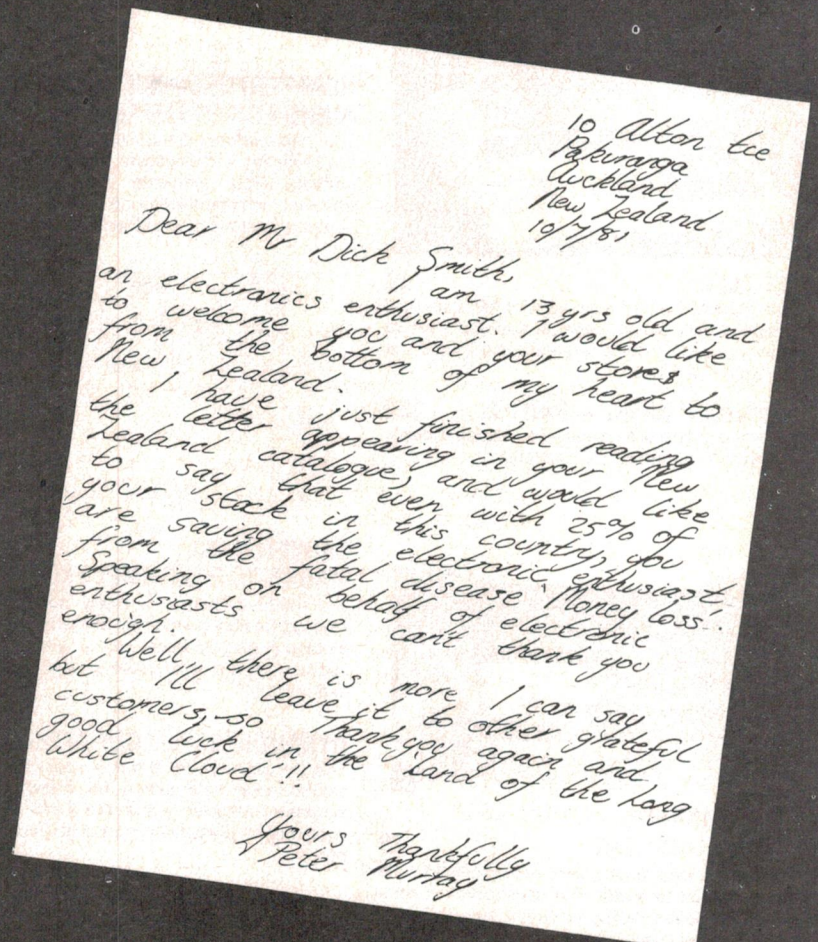 10 Alton tce
Pakuranga
Auckland
New Zealand
10/7/81
Dear Mr Dick Smith,
I am 13 yrs old and
an electronics enthusiast. I would like
to welcome you and your stores
from the bottom of my heart to
New Zealand.
I have just finished reading
the letter appearing in your New
Zealand catalogue, and would like
to say that even with 25% of
your stock in this country, you
are saving the electronic enthusiast
from the fatal disease 'Money loss'.
Speaking on behalf of electronic
enthusiasts we can't thank you
enough.
Well, there is more I can say
but I'll leave it to other grateful
customers, so Thankyou again and
good luck in the 'Land of the Long
White Cloud'!!
Yours Thankfully
Peter Murray